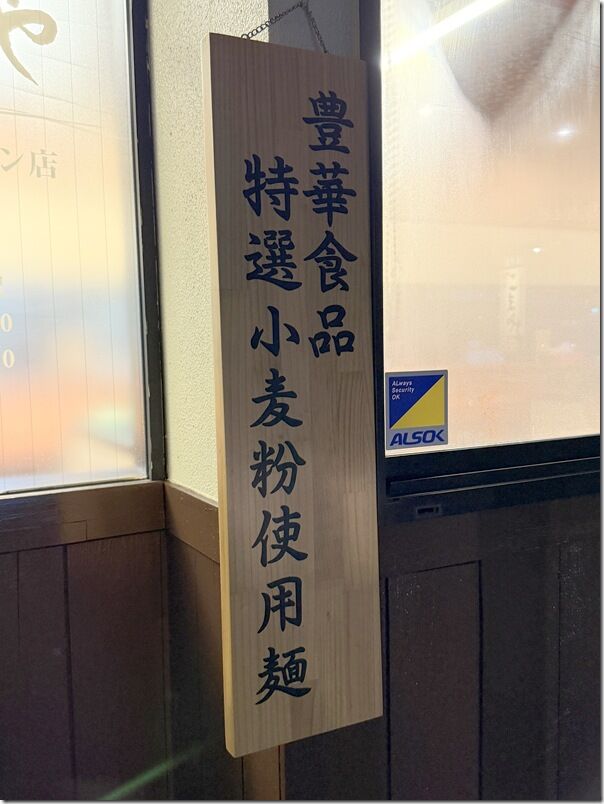 豊華食品
特選小麦粉使用麺
や
ン店
ALways
Security
OK
ALSOK